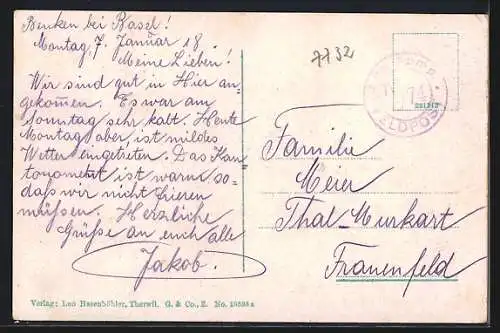 Benken bei Basel!
Montag, 7. Januar 18.
Meine Lieben!
Wir sind gut in Hier an-
gekommen. Es war am
Sonntag sehr kalt. Heute
Montag aber, ist mildes
Wetter eingetreten. Das Kan-
tonoment ist warm so-
daß wir nicht frieren
müssen. Herzliche
Grüße an euch alle
Jakob.
7732
FELDPOST
Familie
Meier
Thal-Murkart
Frauenfeld
Verlag: Leo Hasenböhler, Therwil. G. & Co., Z. No. 19898a